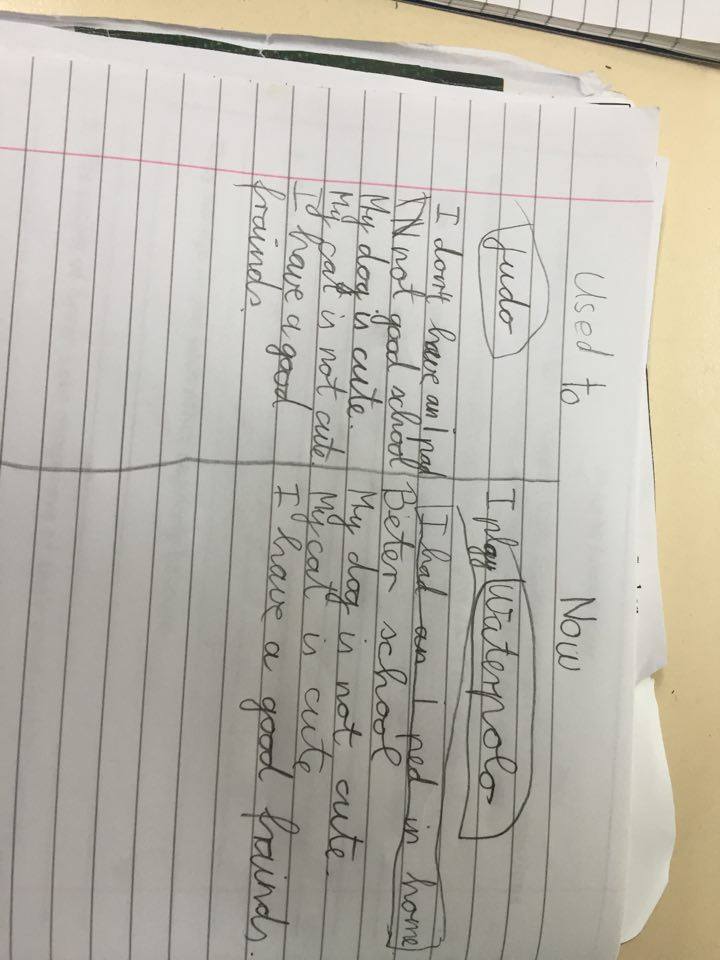 Used to
Now
judo
I play Waterpolo
I don't have an Ipad
I had an Iped in home
not good school
Beter school
My dog is cute.
My dog is not cute.
My cat is not cute.
My cat is cute
I have a good
I have a good frainds.
frainds.